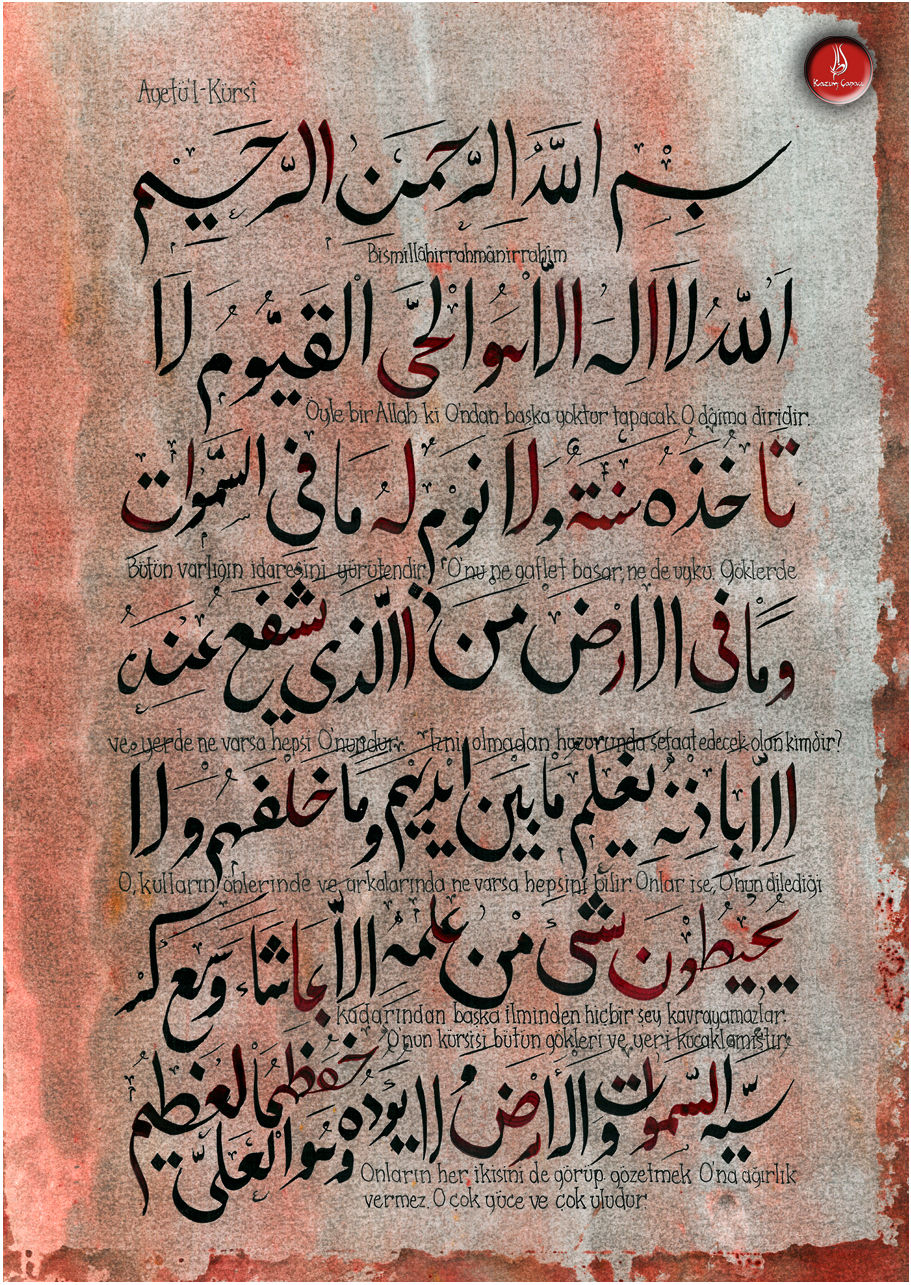 Ayetü'l-Kürsî
Kazım Çapacı
بِسْمِ اللّٰهِ الرَّحْمٰنِ الرَّحِيمِ
Bismillâhirrahmânirrahîm
اَللّٰهُ لَا اِلٰهَ اِلَّا هُوَ الْحَيُّ الْقَيُّومُ لَا
Öyle bir Allah ki O'ndan başka yoktur tapacak. O dâima diridir.
تَاْخُذُهُ سِنَةٌ وَلَا نَوْمٌ لَهُ مَا فِي السَّمٰوَاتِ
Bütün varlığın idaresini yürütendir. O'nu ne gaflet basar, ne de uyku. Göklerde
وَمَا فِي الْاَرْضِ مَنْ ذَا الَّذِي يَشْفَعُ عِنْدَهُ
ve yerde ne varsa hepsi O'nundur. İzni olmadan huzurunda şefaat edecek olan kimdir?
اِلَّا بِاِذْنِهِ يَعْلَمُ مَا بَيْنَ اَيْدِيهِمْ وَمَا خَلْفَهُمْ وَلَا
O, kulların önlerinde ve arkalarında ne varsa hepsini bilir. Onlar ise, O'nun dilediği
يُحِيطُونَ بِشَيْءٍ مِنْ عِلْمِهِ اِلَّا بِمَا شَاءَ وَسِعَ كُرْ
kadarından başka ilminden hiçbir şey kavrayamazlar.
O'nun kürsisi bütün gökleri ve yeri kucaklamıştır.
سِيُّهُ السَّمٰوَاتِ وَالْاَرْضَ وَلَا يَؤُدُهُ حِفْظُهُمَا
وَهُوَ الْعَلِيُّ الْعَظِيمُ
Onların her ikisini de görüp gözetmek O'na ağırlık
vermez. O çok yüce ve çok uludur.